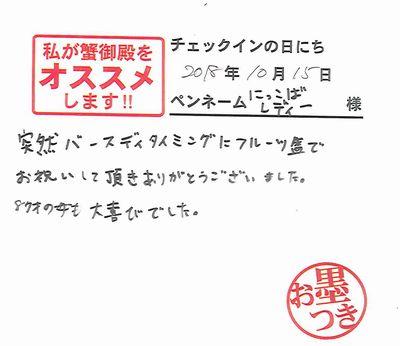 私が蟹御殿を
オススメ
します!!
チェックインの日にち
2018年10月15日
ペンネーム にっこばレディー 様
突然バースディタイミングにフルーツ盛で
お祝いして頂きありがとうございました。
87才の母も大喜びでした。
お墨つき